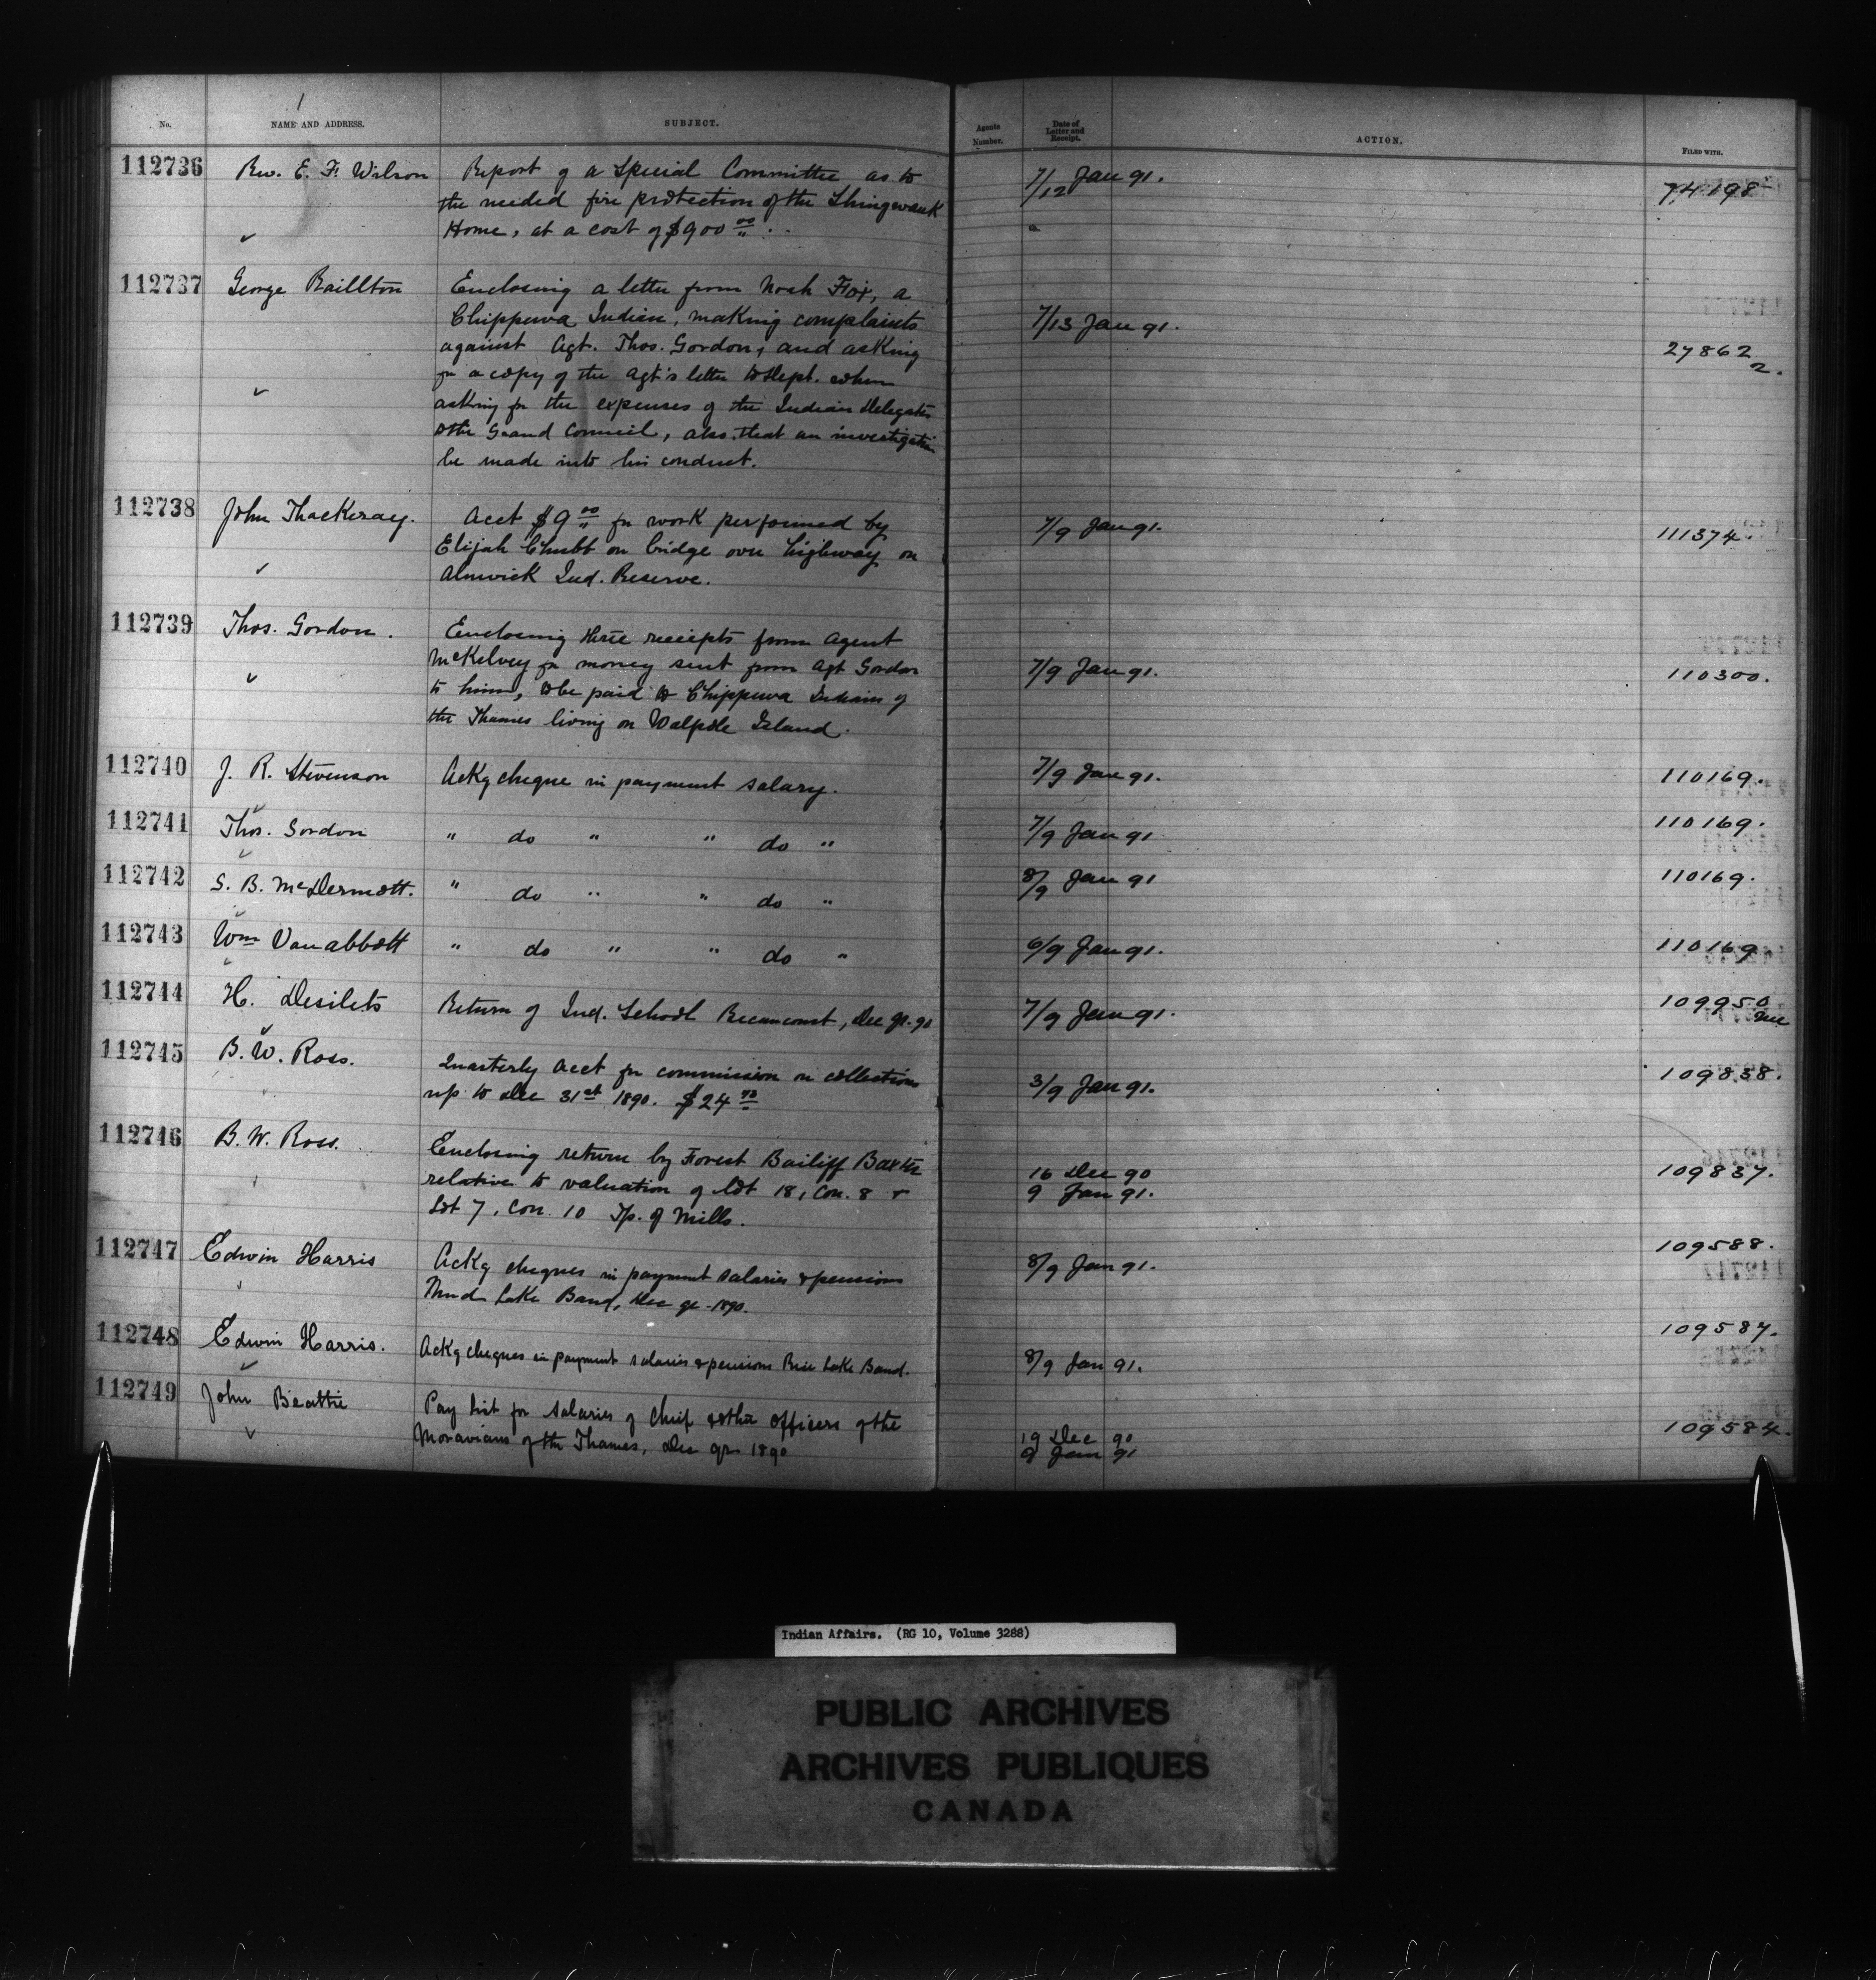 1
No. NAME AND ADDRESS. SUBJECT. Agents Number. Date of Letter and Receipt. ACTION. FILED WITH.
112736 Rev. E. F. Wilson Report of a Special Committee as to 7/12 Jan 91. 74198
the needed fire protection of the Shingwauk
Home, at a cost of $900 00/"
112737 George Raillton Enclosing a letter from Noah Fox, a
Chippewa Indian, making complaints 7/13 Jan 91.
against Agt. Thos. Gordon, and asking 27862
for a copy of the Agt's letter to Dept. when 2.
asking for the expenses of the Indian Delegates
to the Grand Council, also that an investigation
be made into his conduct.
112738 John Thackeray. Acct $9 00/" for work performed by 7/9 Jan 91. 111374.
Elijah Chubb on bridge over highway on
Alnwick Ind. Reserve.
112739 Thos. Gordon. Enclosing three receipts from Agent
McKelvey for money sent from Agt Gordon 7/9 Jan 91. 110300.
to him, to be paid to Chippewa Indians of
the Thames living on Walpole Island.
112740 J. R. Stevenson Ackg cheque in payment salary. 7/9 Jan 91. 110169.
112741 Thos. Gordon " do " " do " 7/9 Jan 91 110169.
112742 S. B. McDermott. " do " " do " 8/9 Jan 91 110169.
112743 Wm Van abbott " do " " do " 6/9 Jan 91. 110169
112744 H. Desilets Return of Ind. School Becancourt, Dec qr. 90 7/9 Jan 91. 109950
112745 B. W. Ross. Quarterly Acct for commission on collections 3/9 Jan 91. 109838.
up to Dec 31st 1890. $24
112746 B. W. Ross. Enclosing return by Forest Bailiff Baxter
relative to valuation of Lot 18, Con. 8 & 16 Dec 90 109837.
Lot 7, Con. 10 Tp. of Mills. 9 Jan 91.
112747 Edwin Harris Ackg cheques in payment salaries & pensions 8/9 Jan 91. 109588.
Mud Lake Band, Dec qr - 1890.
112748 Edwin Harris. Ackg cheques in payment salaries & pensions Rice Lake Band. 8/9 Jan 91. 109587.
112749 John Beattie Pay list for salaries of Chief & other officers of the 19 Dec 90 109584.
Moravians of the Thames, Dec qr 1890 9 Jan 91
Indian Affairs. (RG 10, Volume 3288)
PUBLIC ARCHIVES
ARCHIVES PUBLIQUES
CANADA